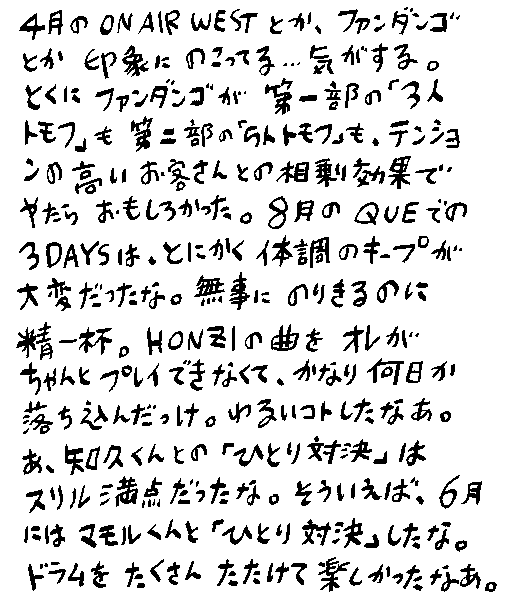 4月の ON AIR WEST とか、ファンダンゴ
とか 印象に のこってる…気がする。
とくに ファンダンゴが 第一部の「3人
トモフ」も 第二部の「5人トモフ」も、テンショ
ンの高い お客さんとの相剰効果で
やたら おもしろかった。8月の QUEでの
3DAYSは、とにかく 体調のキープが
大変だったな。無事に のりきるのに
精一杯。HONZIの曲を オレが
ちゃんと プレイできなくて、かなり何日か
落ち込んだっけ。わるいコトしたなあ。
あ、知久くんとの「ひとり対決」は
スリル満点だったな。そういえば、6月
には マモルくんと「ひとり対決」したな。
ドラムを たくさん たたけて楽しかったなあ。